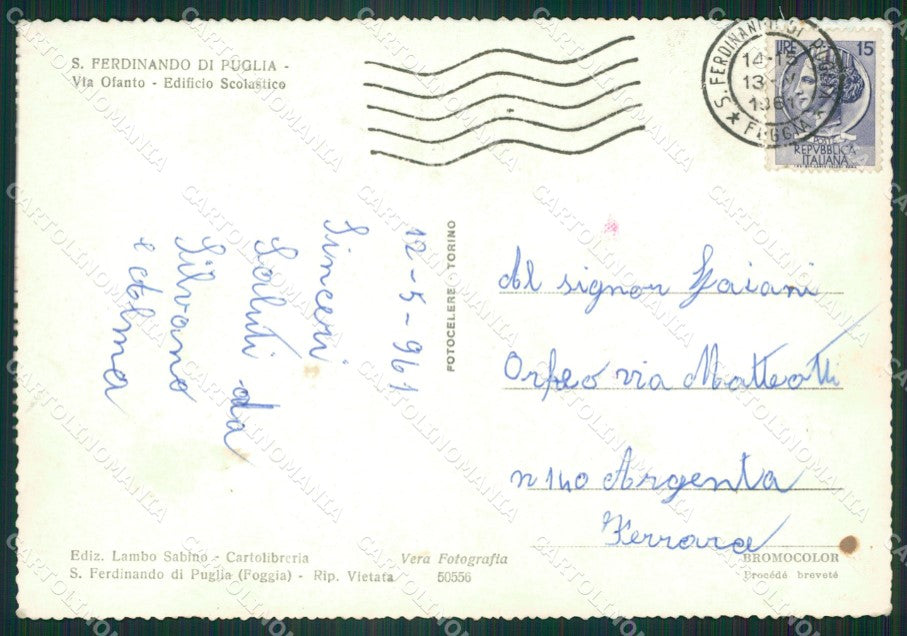 S. FERDINANDO DI PUGLIA -
Via Ofanto - Edificio Scolastico
S. FERDINANDO DI PUGLIA
14-15
13-
1961
★ FOGGIA ★
LIRE 15
POSTE
REPVBBLICA
ITALIANA
12-5-961
Sinceri
Saluti da
Silvano
e Alma
FOTOCELERE - TORINO
Al signor Gaiani
Orfeo via Matteotti
n 140 Argenta
Ferrara
Ediz. Lambo Sabino - Cartolibreria
S. Ferdinando di Puglia (Foggia) - Rip. Vietata
Vera Fotografia
50556
BROMOCOLOR
Procédé breveté
CARTOLINOMANIA